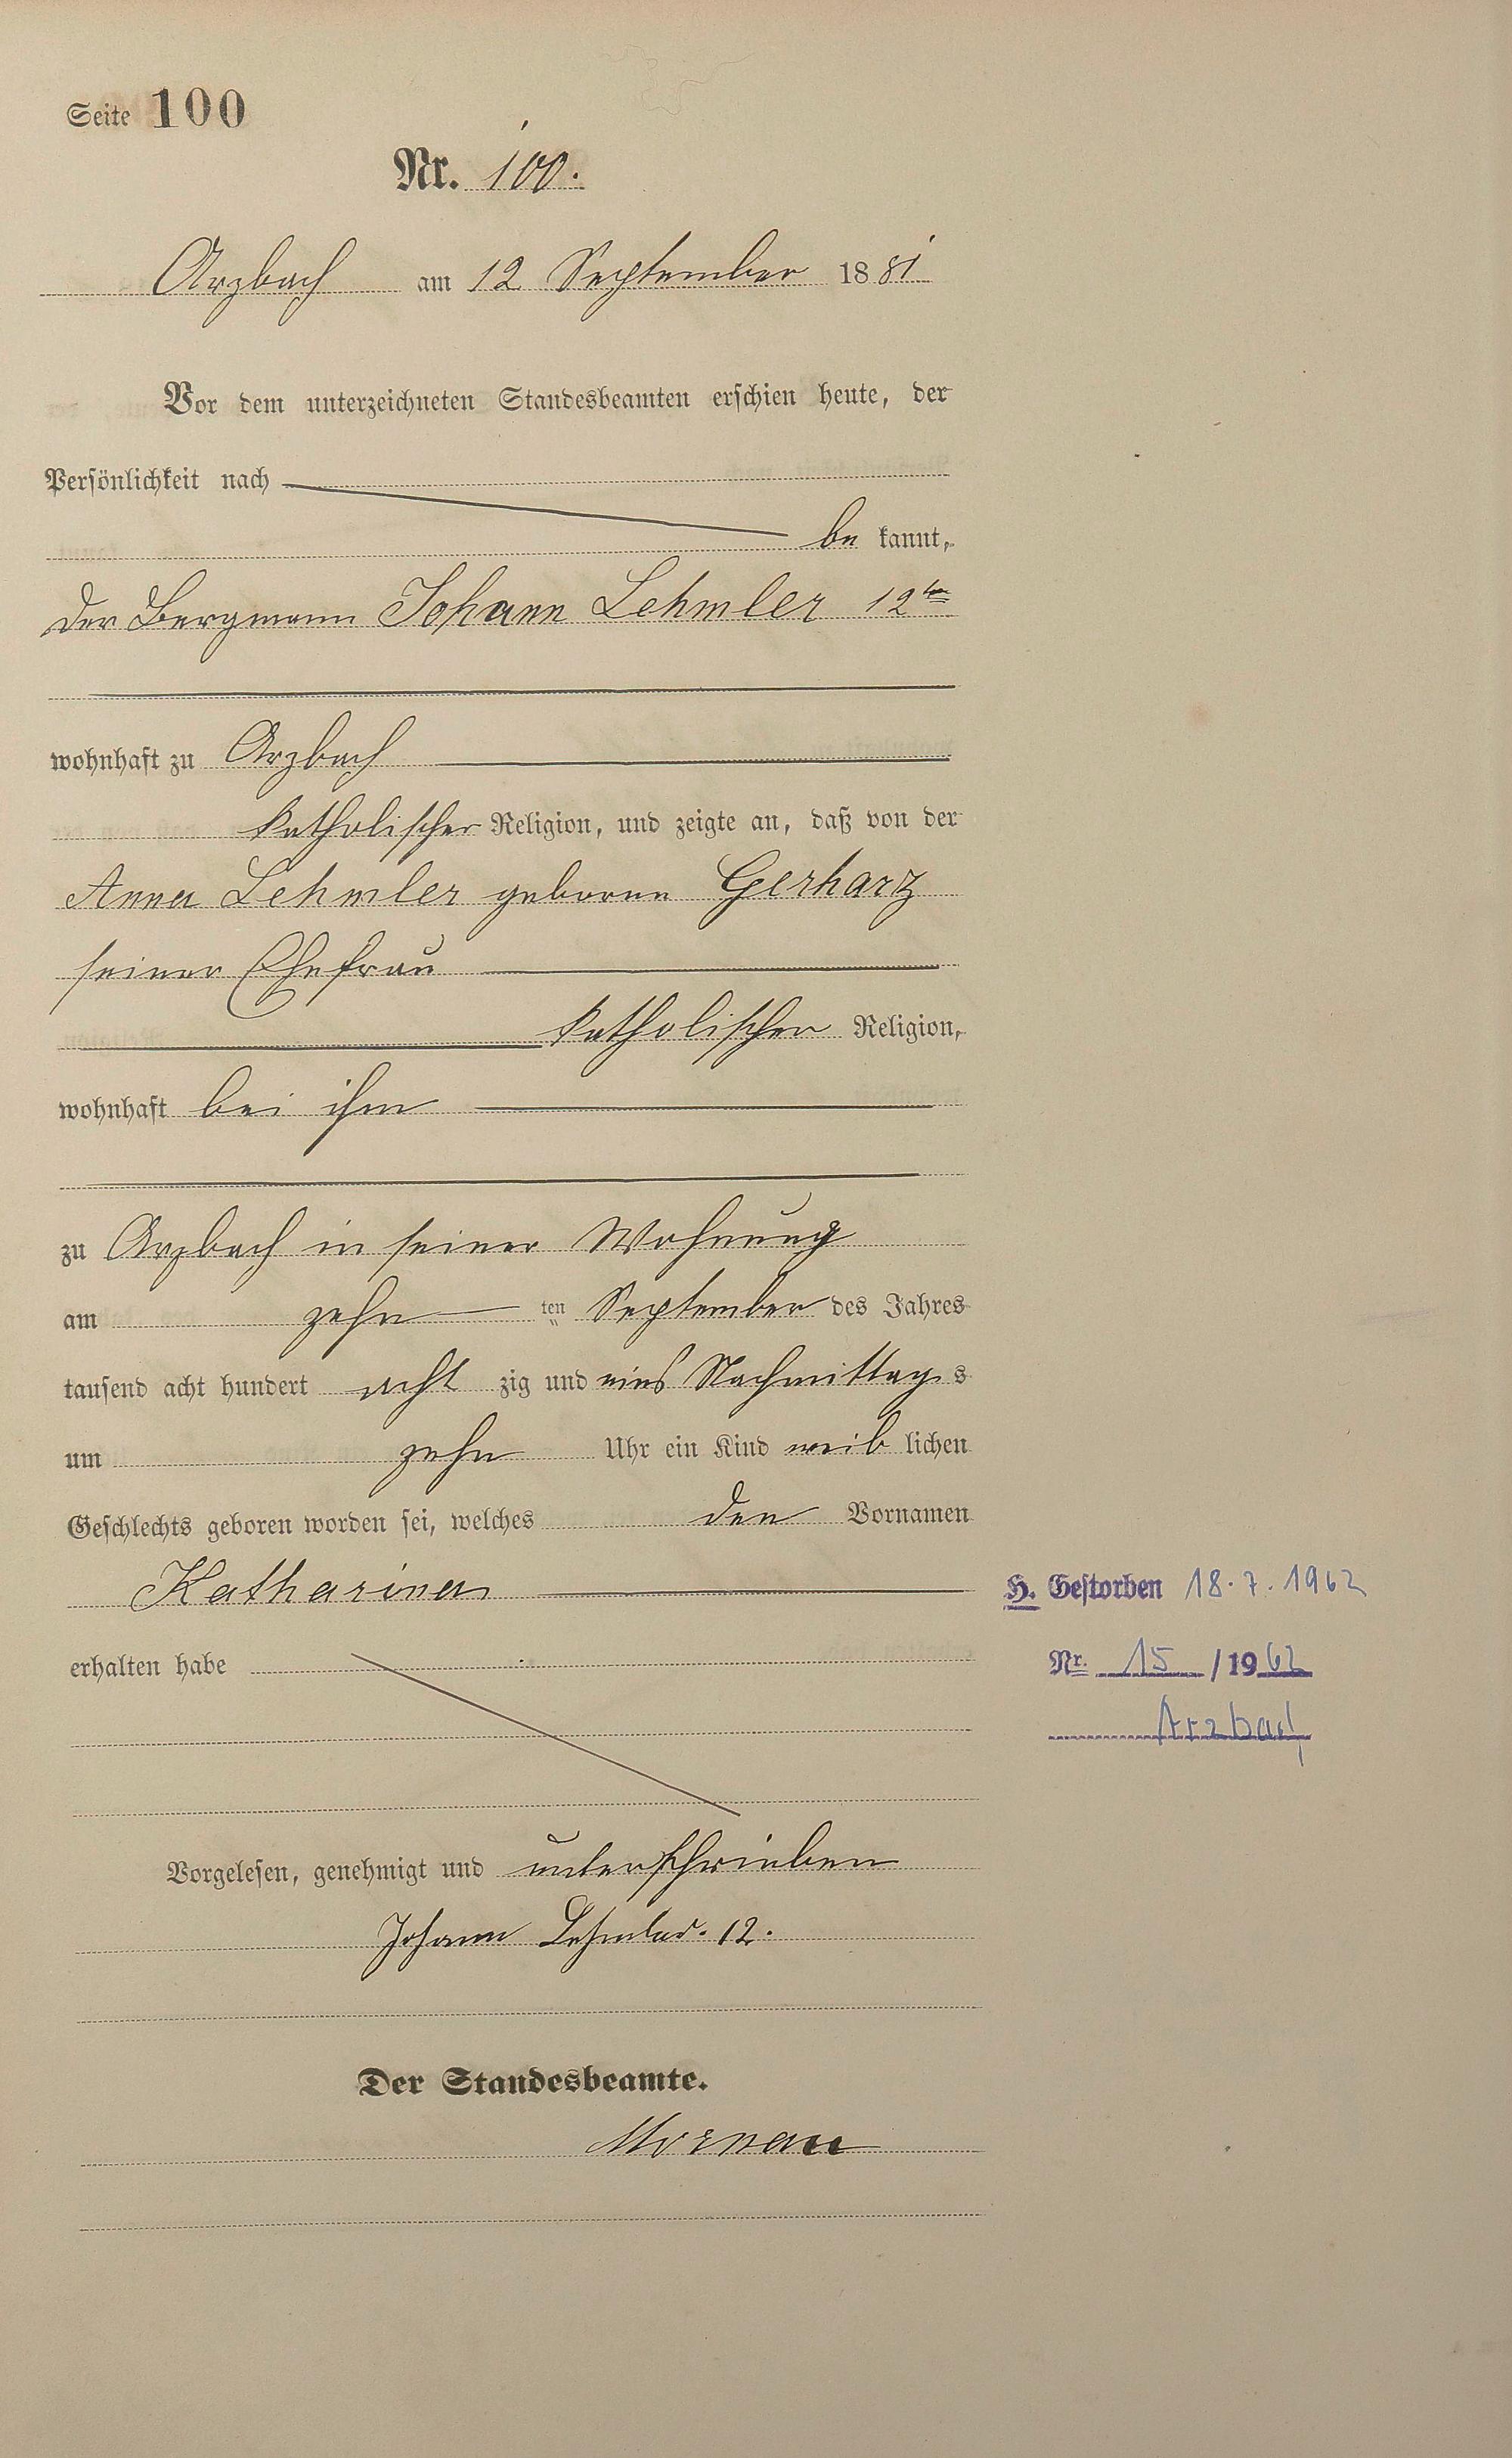 Seite 100
Nr. 100.
Arzbach am 12 September 1881
Vor dem unterzeichneten Standesbeamten erschien heute, der
Persönlichkeit nach
be kannt,
der Bergmann Johann Lehmler 12te
wohnhaft zu Arzbach
katholischer Religion, und zeigte an, daß von der
Anna Lehmler geborne Gerharz
seiner Ehefrau
katholischer Religion,
wohnhaft bei ihm
zu Arzbach in seiner Wohnung
am zehn ten September des Jahres
tausend acht hundert acht zig und eins Nachmittags
um zehn Uhr ein Kind weib lichen
Geschlechts geboren worden sei, welches den Vornamen
Katharina
H. Gestorben 18.7.1962
erhalten habe
Nr. 15 / 1962
Arzbach
Vorgelesen, genehmigt und unterschrieben
Johann Lehmler. 12.
Der Standesbeamte.